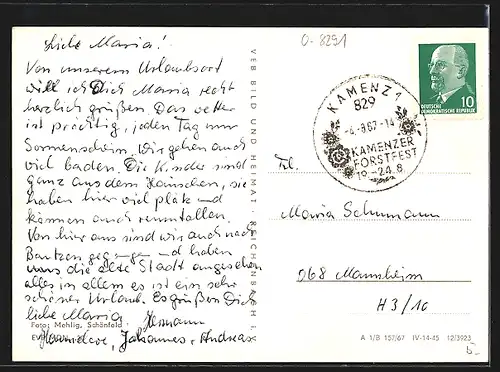 Liebe Maria!
Von unserem Urlaubsort
will ich Dich Maria recht
herzlich grüßen. Das Wetter
ist prächtig, jeden Tag nur
Sonnenschein. Wir gehen auch
viel baden. Die Kinder sind
ganz aus dem Häuschen, sie
haben hier viel platz und
können auch rumtollen.
Von hier aus sind wir auch nach
Bautzen gegangen und haben
uns die alte Stadt angesehen
alles in allem es ist ein sehr
schöner Urlaub. Es grüßen Dich
liebe Maria
Hermann
Johannes, Andreas
Foto: Mehlig, Schönfeld
VEB BILD UND HEIMAT REICHENBACH I. V.
0-8291
KAMENZ 1
829
-4.-8.67.-14
KAMENZER
FORSTFEST
19.-24.8.
10
DEUTSCHE
DEMOKRATISCHE REPUBLIK
Frl.
Maria Schumann
068 Mannheim
H3/10
A 1/B 157/67 IV-14-45 12/3923
5.-